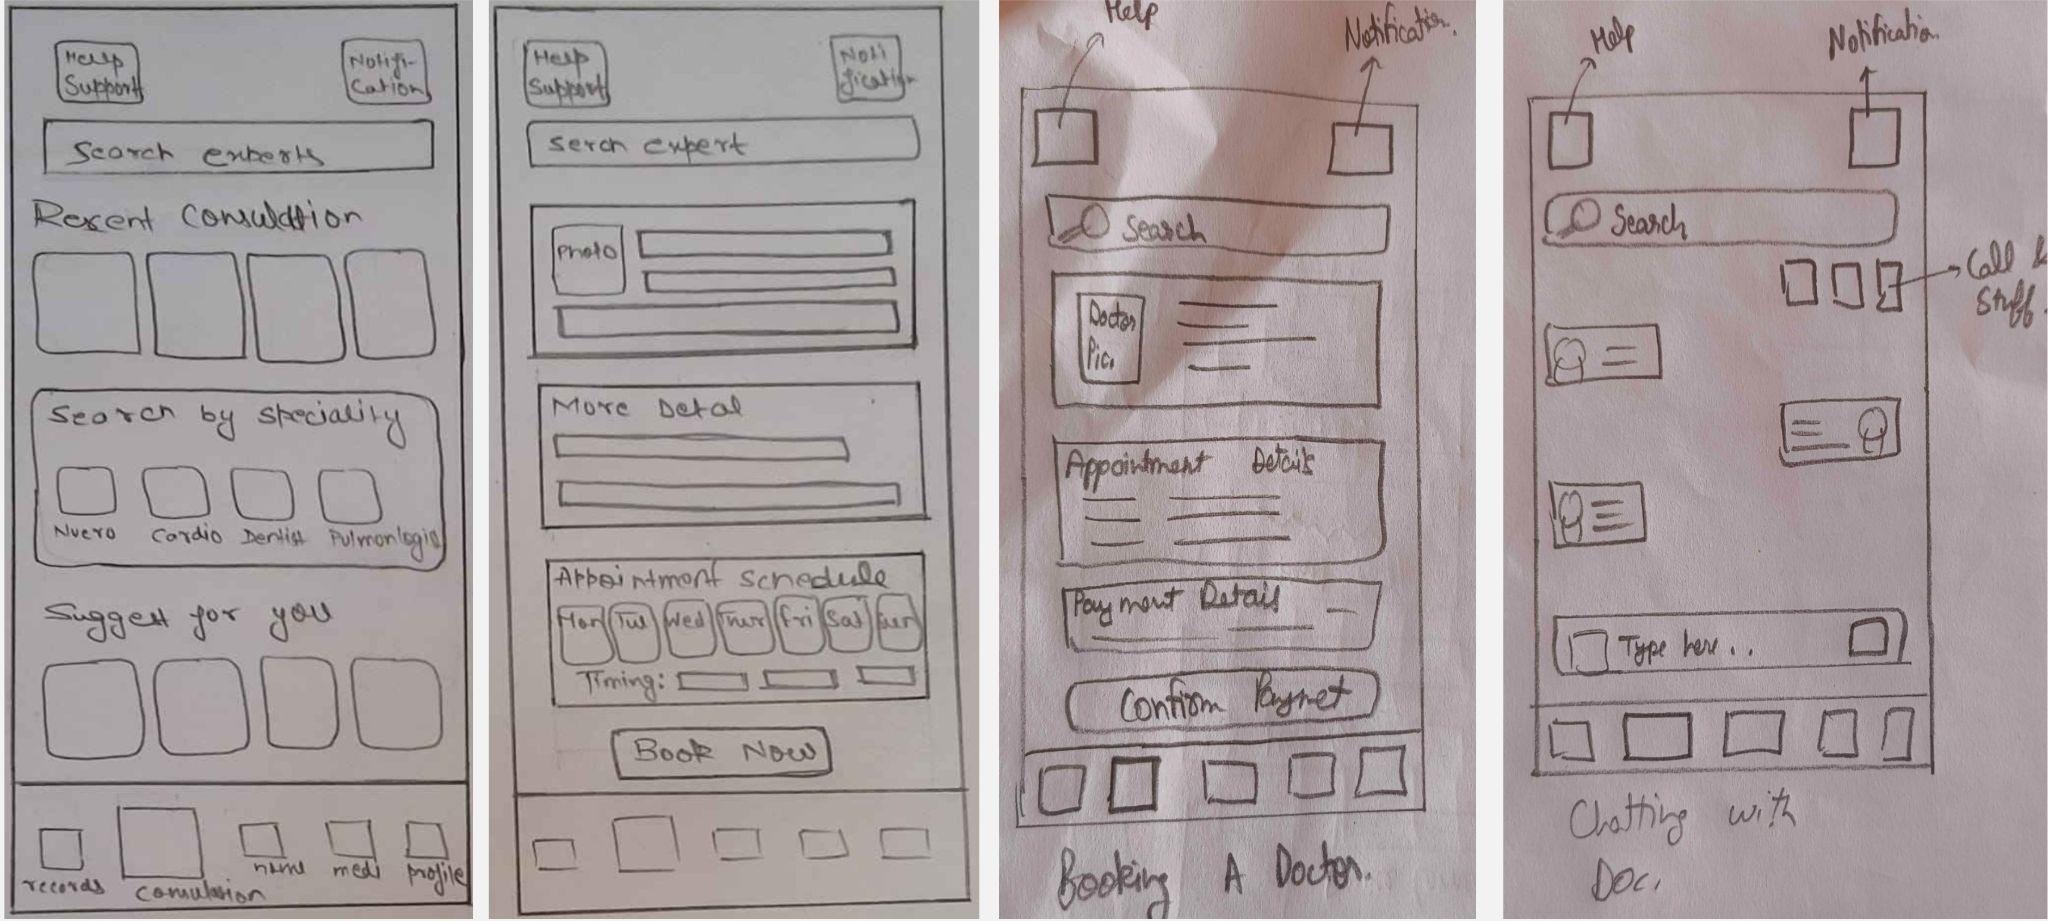 Help
Support
Notifi-
cation
Search experts
Rexent Consuldtion
Search by speciality
Nuero
Cardio
Dentist
Pulmonlogis
Suggest for you
records
consulation
medi
profile
Help
Support
Noti
fication
serch expert
Photo
More Detal
Appointment schedule
Mon
Tul
Wed
Thur
Fri
Sat
Sun
Timing:
Book Now
Help
Notification.
Search
Doctor
Pic.
Appointment Details
Payment Details
Confirm Paymet
Booking A Doctor.
Help
Notification
Search
Call &
Stuff.
Type here..
Chatting with
Doc.